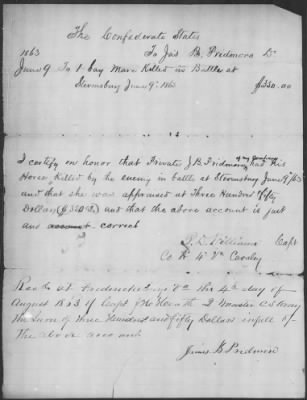 The Confederate States
1863 To Jas B. Pridmore Dr
June 9 To 1 bay Mare Killed in Battle at
Stevnsburg June 9th 1863 $350.00
I certify on honor that Private J B Pridmore had his
Horse Killed by the enemy in battle at Stevnsburg June 9/63
and that she was appraised at Three Hundred & fifty
Dollars ($350 00/100) and that the above account is just
and correct
Williams Capt
Co 4th Va Cavalry
Rec'd at Fredericksburg Va this 4th day of
August 1863 of Capt Jno Master C S Army
the sum of three Hundred and fifty Dollars in full of
the above account
James B Pridmore